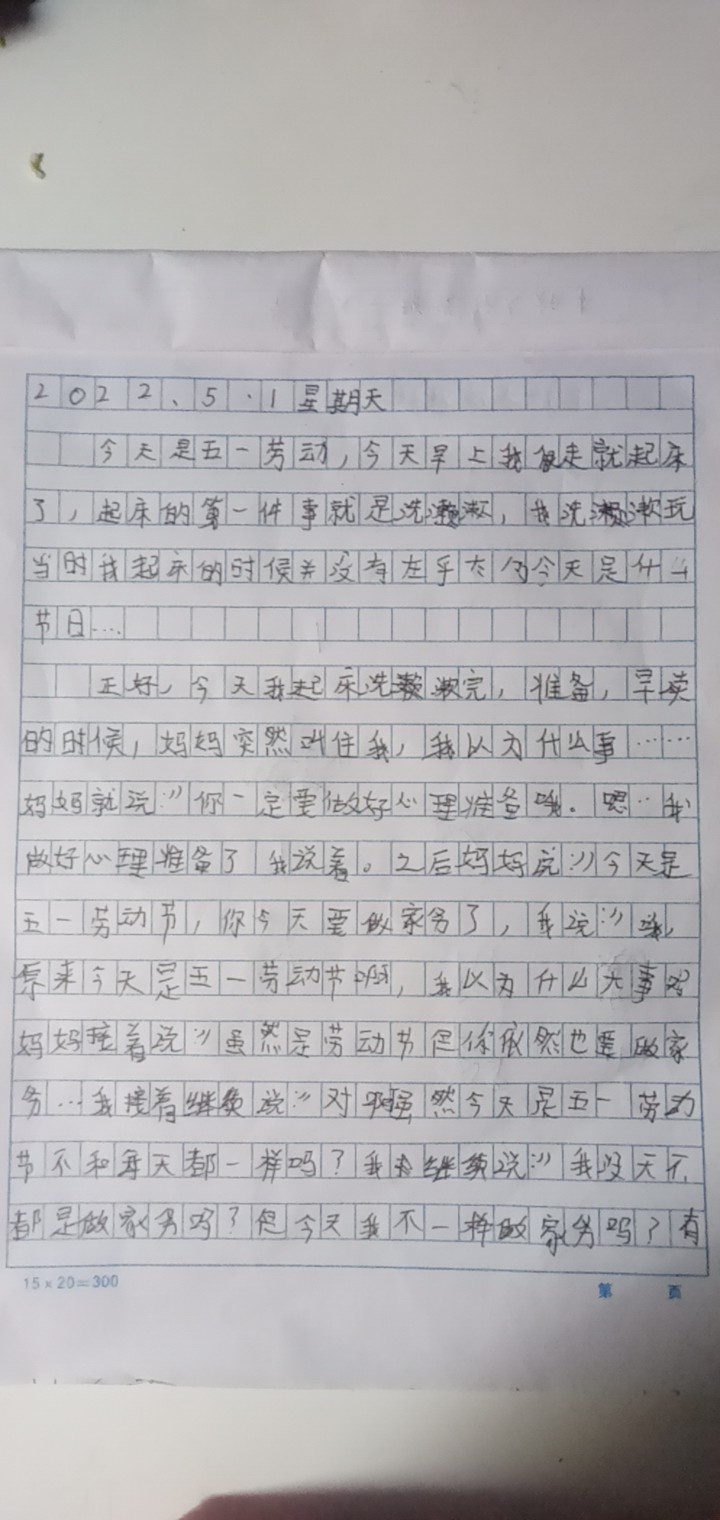 2022、5·1星期天
今天是五一劳动,今天早上我很走就起床
了,起床的第一件事就是洗漱漱,我洗漱漱玩
当时我起床的时候并没有在乎太今天是什么
节日…
正好,今天我起床洗漱漱完,准备,早读
的时候,妈妈突然叫住我,我以为什么事……
妈妈就说:"你一定要做好心理准备哦.嗯…我
做好心理准备了我说着。之后妈妈说:"今天是
五一劳动节,你今天要做家务了,我说:"哦,
原来今天是五一劳动节啊,我以为什么大事呢
妈妈接着说:"虽然是劳动节但你依然也要做家
务…我接着继续说:"对啊虽然今天是五一劳动
节不和每天都一样吗?我继续说:"我没天不
都是做家务吗?但今天我不一样做家务吗?有
15×20=300
第 页